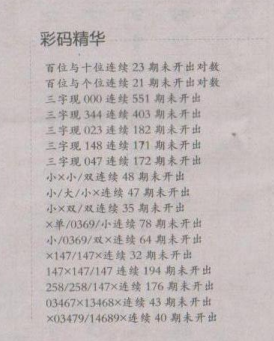 彩码精华
百位与十位连续 23 期未开出对数
百位与个位连续 21 期未开出对数
三字现 000 连续 551 期未开出
三字现 344 连续 403 期未开出
三字现 023 连续 182 期未开出
三字现 148 连续 171 期未开出
三字现 047 连续 172 期未开出
小×小/双连续 48 期未开出
小/大/小×连续 47 期未开出
小×双/双连续 35 期未开出
×单/0369/小连续 78 期未开出
小/0369/双×连续 64 期未开出
×147/147×连续 32 期未开出
147×147/147 连续 194 期未开出
258/258/147×连续 176 期未开出
03467×13468×连续 43 期未开出
×03479/14689×连续 40 期未开出